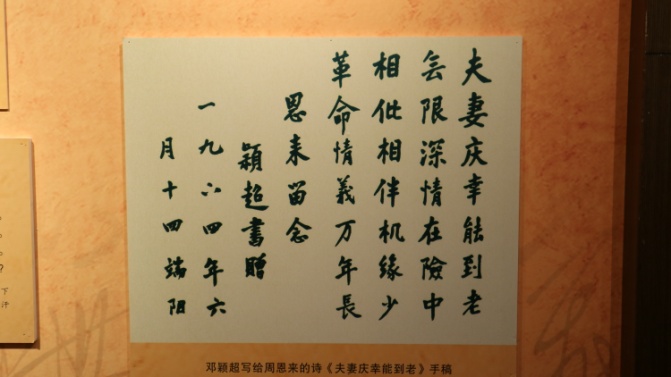 夫妻庆幸能到老
无限深情在險中
相伱相伴机缘少
革命情義万年長
恩来留念
颖超書赠
一九六四年六
月十四端阳
邓颖超写给周恩来的诗《夫妻庆幸能到老》手稿